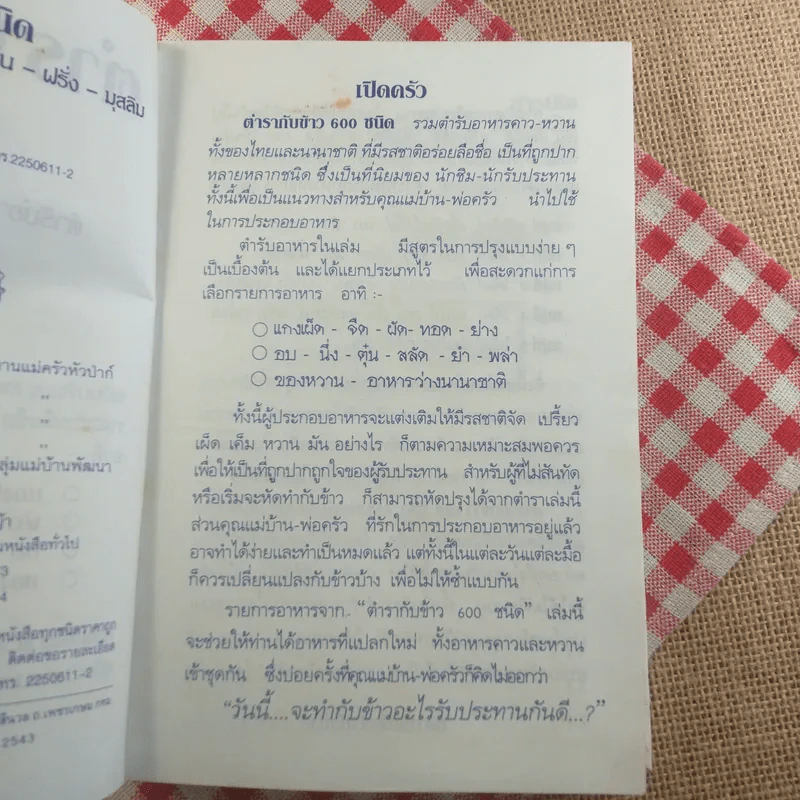 นิด
น – ฝรั่ง – มุสลิม
ทร.2250611-2
านแม่ครัวหัวป่าก์
"
"
ลุ่มแม่บ้านพัฒนา
มหนังสือทั่วไป
3
4
หนังสือทุกชนิดราคาถูก
ติดต่อขอรายละเอียด
ทร. 2250611-2
ถ.เพชรเกษม กทม.
2543
เปิดครัว
ตำรากับข้าว 600 ชนิด รวมตำรับอาหารคาว-หวาน
ทั้งของไทยและนานาชาติ ที่มีรสชาติอร่อยลือชื่อ เป็นที่ถูกปาก
หลายหลากชนิด ซึ่งเป็นที่นิยมของ นักชิม-นักรับประทาน
ทั้งนี้เพื่อเป็นแนวทางสำหรับคุณแม่บ้าน-พ่อครัว นำไปใช้
ในการประกอบอาหาร
ตำรับอาหารในเล่ม มีสูตรในการปรุงแบบง่าย ๆ
เป็นเบื้องต้น และได้แยกประเภทไว้ เพื่อสะดวกแก่การ
เลือกรายการอาหาร อาทิ :-
○ แกงเผ็ด - จืด - ผัด- ทอด - ย่าง
○ อบ - นึ่ง - ตุ๋น - สลัด - ยำ - พล่า
○ ของหวาน - อาหารว่างนานาชาติ
ทั้งนี้ผู้ประกอบอาหารจะแต่งเติมให้มีรสชาติจัด เปรี้ยว
เผ็ด เค็ม หวาน มัน อย่างไร ก็ตามความเหมาะสมพอควร
เพื่อให้เป็นที่ถูกปากถูกใจของผู้รับประทาน สำหรับผู้ที่ไม่สันทัด
หรือเริ่มจะหัดทำกับข้าว ก็สามารถหัดปรุงได้จากตำราเล่มนี้
ส่วนคุณแม่บ้าน-พ่อครัว ที่รักในการประกอบอาหารอยู่แล้ว
อาจทำได้ง่ายและทำเป็นหมดแล้ว แต่ทั้งนี้ในแต่ละวันแต่ละมื้อ
ก็ควรเปลี่ยนแปลงกับข้าวบ้าง เพื่อไม่ให้ซ้ำแบบกัน
รายการอาหารจาก "ตำรากับข้าว 600 ชนิด" เล่มนี้
จะช่วยให้ท่านได้อาหารที่แปลกใหม่ ทั้งอาหารคาวและหวาน
เข้าชุดกัน ซึ่งบ่อยครั้งที่คุณแม่บ้าน-พ่อครัวก็คิดไม่ออกว่า
"วันนี้....จะทำกับข้าวอะไรรับประทานกันดี...?"